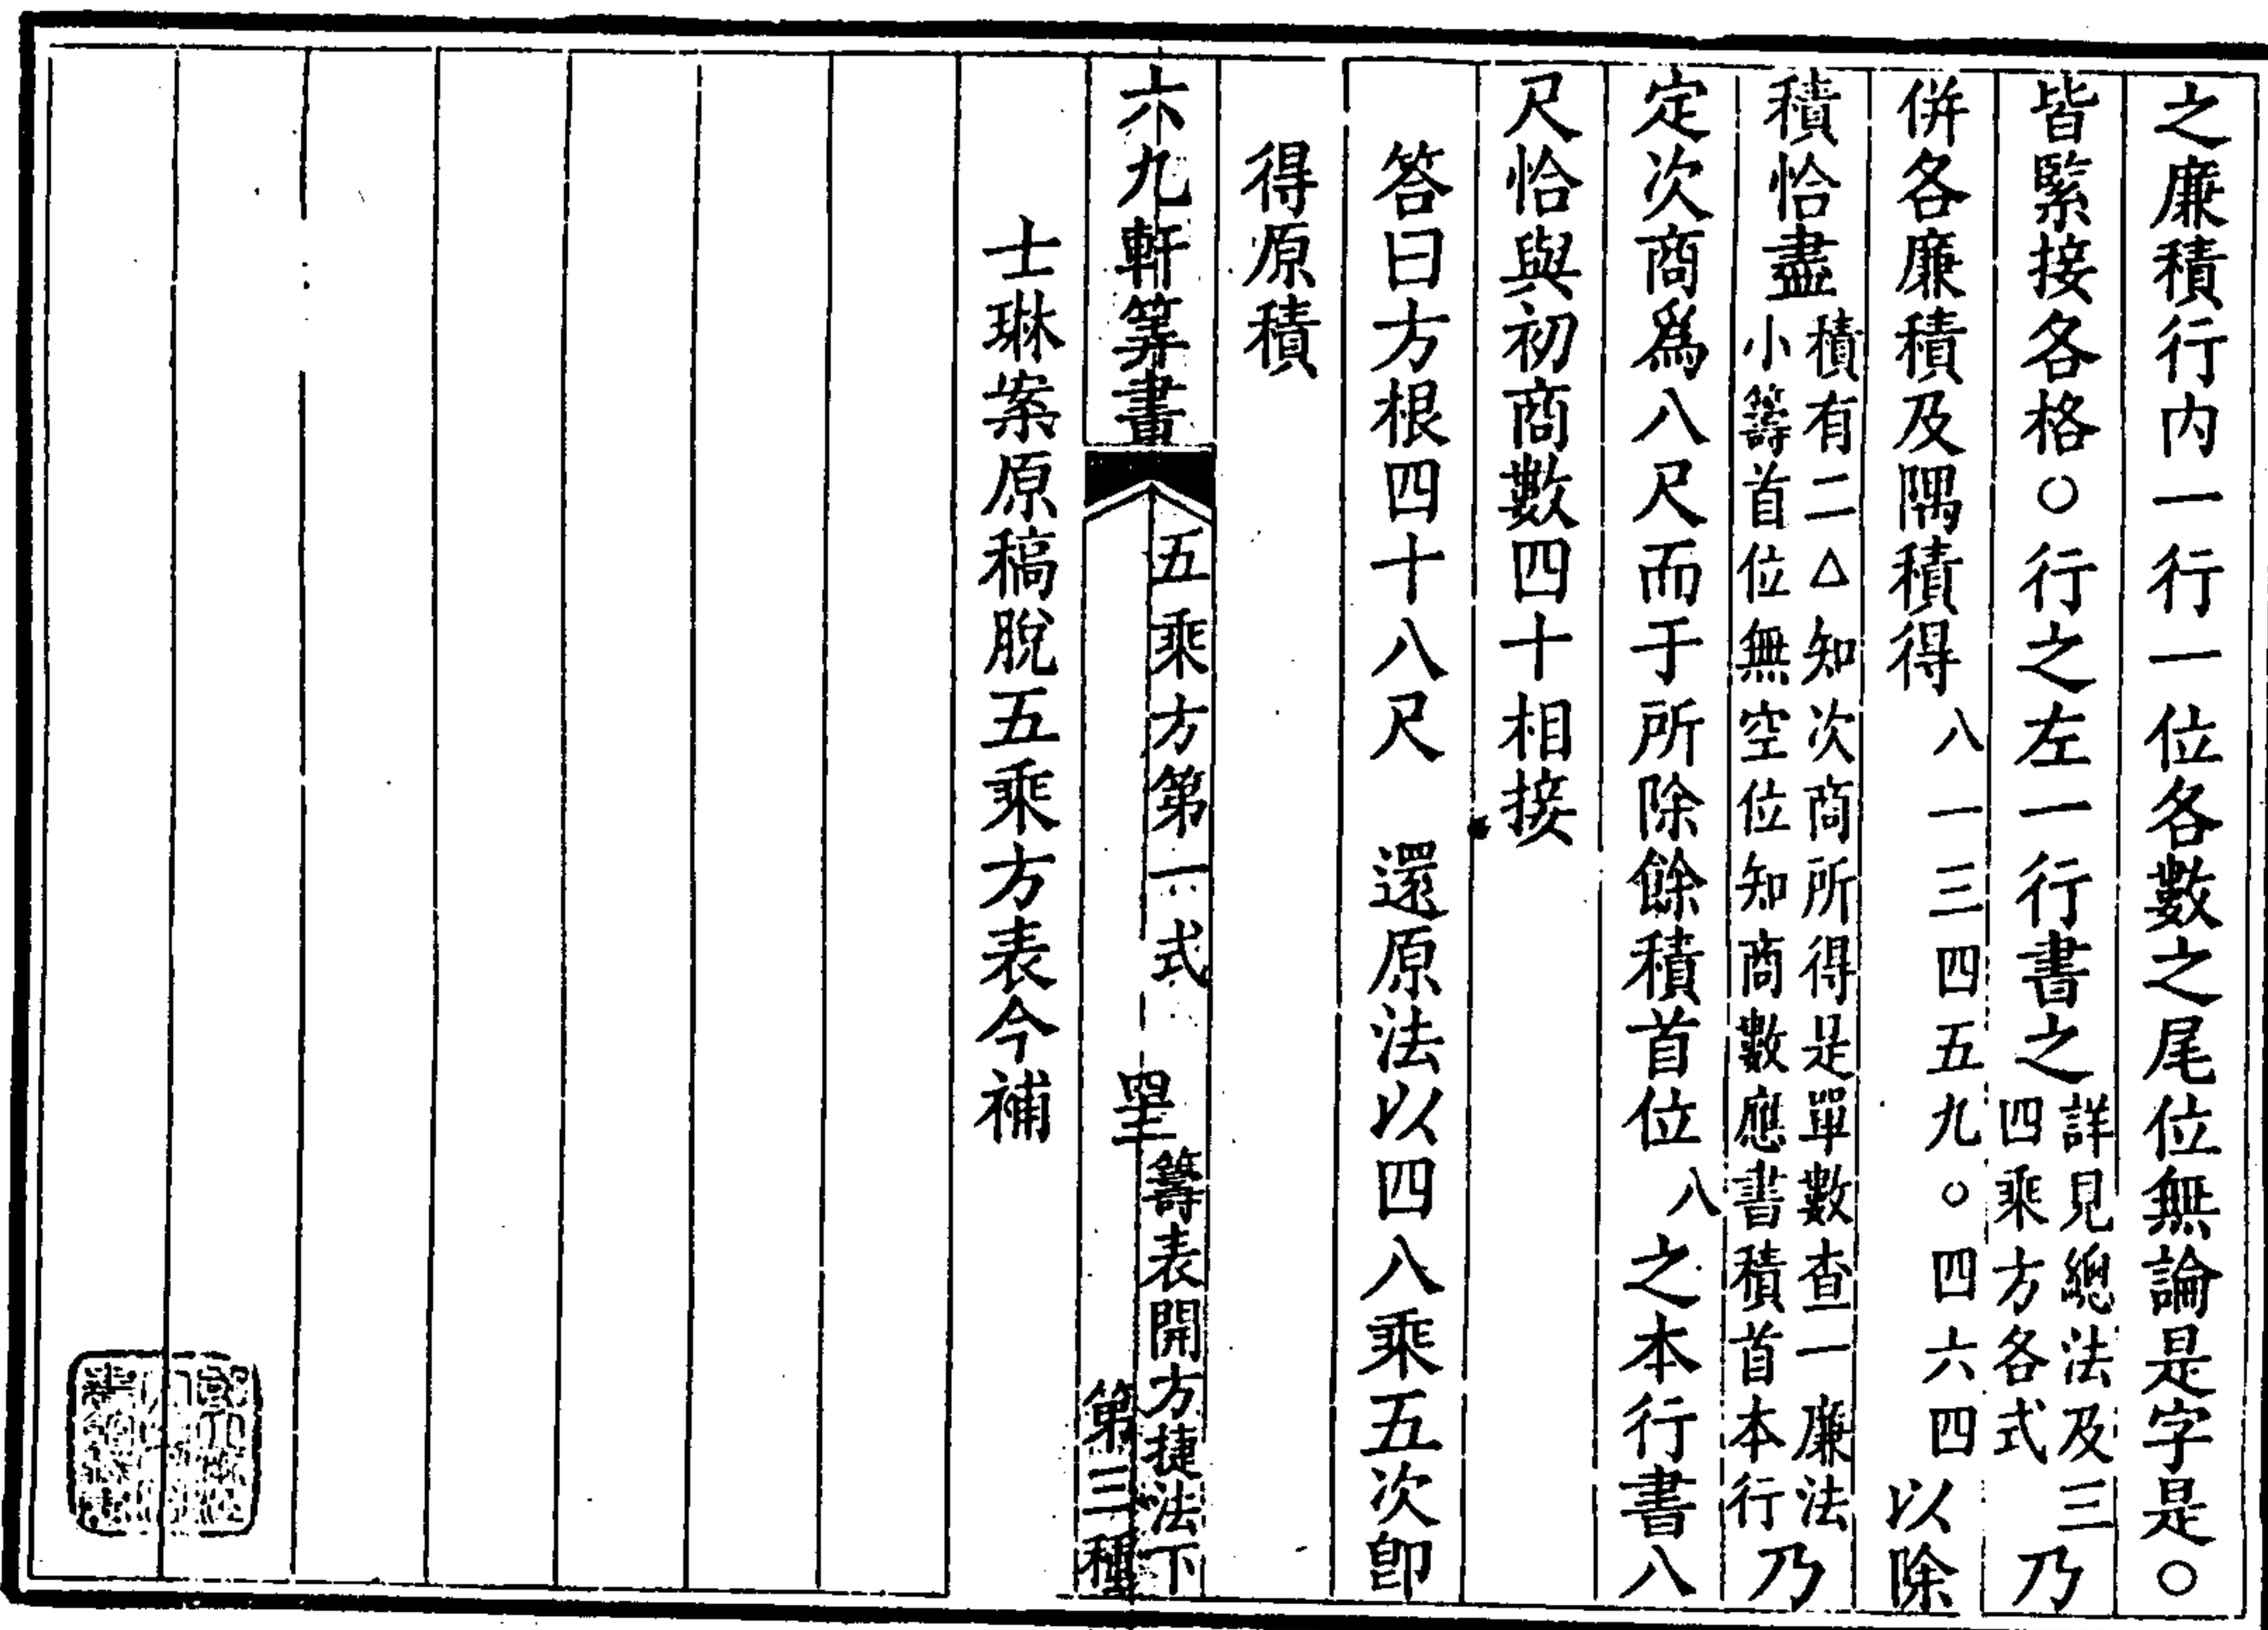 之廉積行内一行一位各數之尾位無論是字是○
皆緊接各格○行之左一行書之詳見總法及三四乘方各式乃
併各廉積及隅積得八一三四五九○四六四以除
積恰盡積有二△知次商所得是單數查一廉法小籌首位無空位知商數應書積首本行乃
定次商爲八尺而于所除餘積首位八之本行書八
尺恰與初商數四十相接
答曰方根四十八尺　還原法以四八乘五次卽
得原積
六九軒筭書
五乘方第一式
籌表開方捷法下
第三種
士琳案原稿脫五乘方表今補